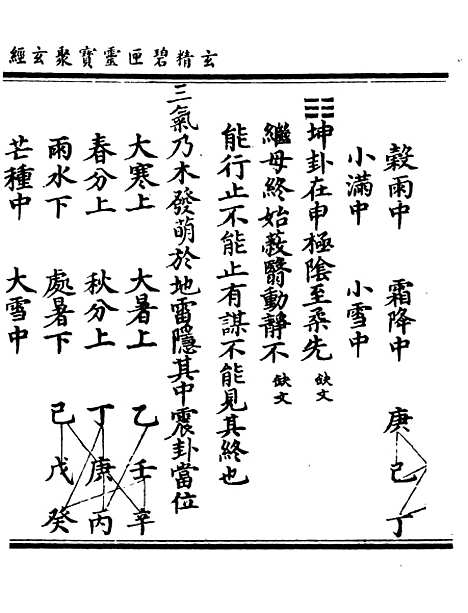 玄精碧匣靈寶聚玄經
穀雨中 霜降中 庚 己 丁
小滿中 小雪中
䷁坤卦在申極陰至柔先 缺文
繼母終始蔱翳動靜不 缺文
能行止不能止有謀不能見其終也
三氣乃木發萌於地雷隱其中震卦當位
大寒上 大暑上 乙 壬 辛
春分上 秋分上 丁 庚 丙
雨水下 處暑下 己 戊 癸
芒種中 大雪中